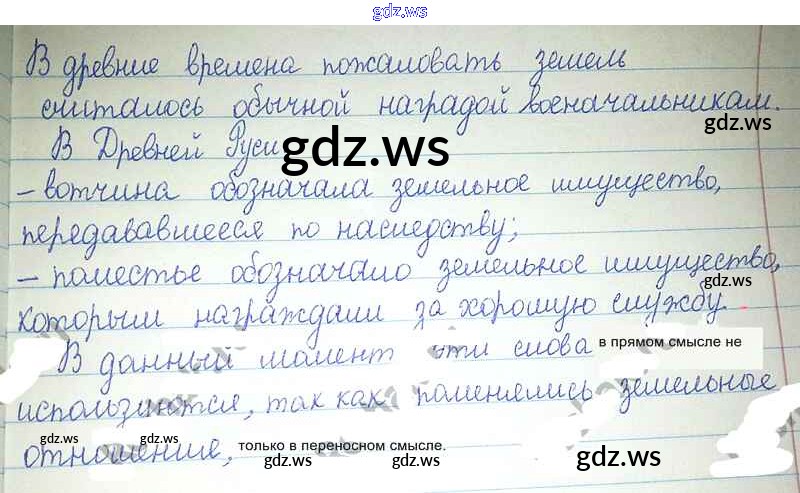 gdz.ws
В древние времена пожаловать земель
считалось обычной наградой военачальникам.
gdz.ws
В Древней Руси
gdz.ws
– вотчина обозначала земельное имущество,
передававшееся по наследству;
– поместье обозначало земельное имущество,
gdz.ws
которым награждали за хорошую службу.
В данный момент эти слова в прямом смысле не
используются, так как поменялись земельные
отношение, только в переносном смысле.
gdz.ws gdz.ws gdz.ws gdz.ws
gdz.ws